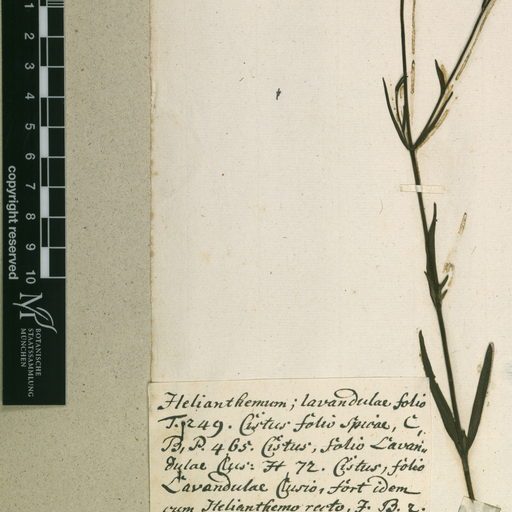 1
2
3
4
5
6
7
8
9
10
copyright reserved
BOTANISCHE
STAATSSAMMLUNG
MÜNCHEN
Helianthemum; lavandulae folio
T. 249. Cistus folio Spicae, C,
B, P. 465. Cistus, folio Lavan=
dulae Clus: H 72. Cistus, folio
Lavandulae Clusio, fort idem
cum Helianthemo recto, J. B. 2.